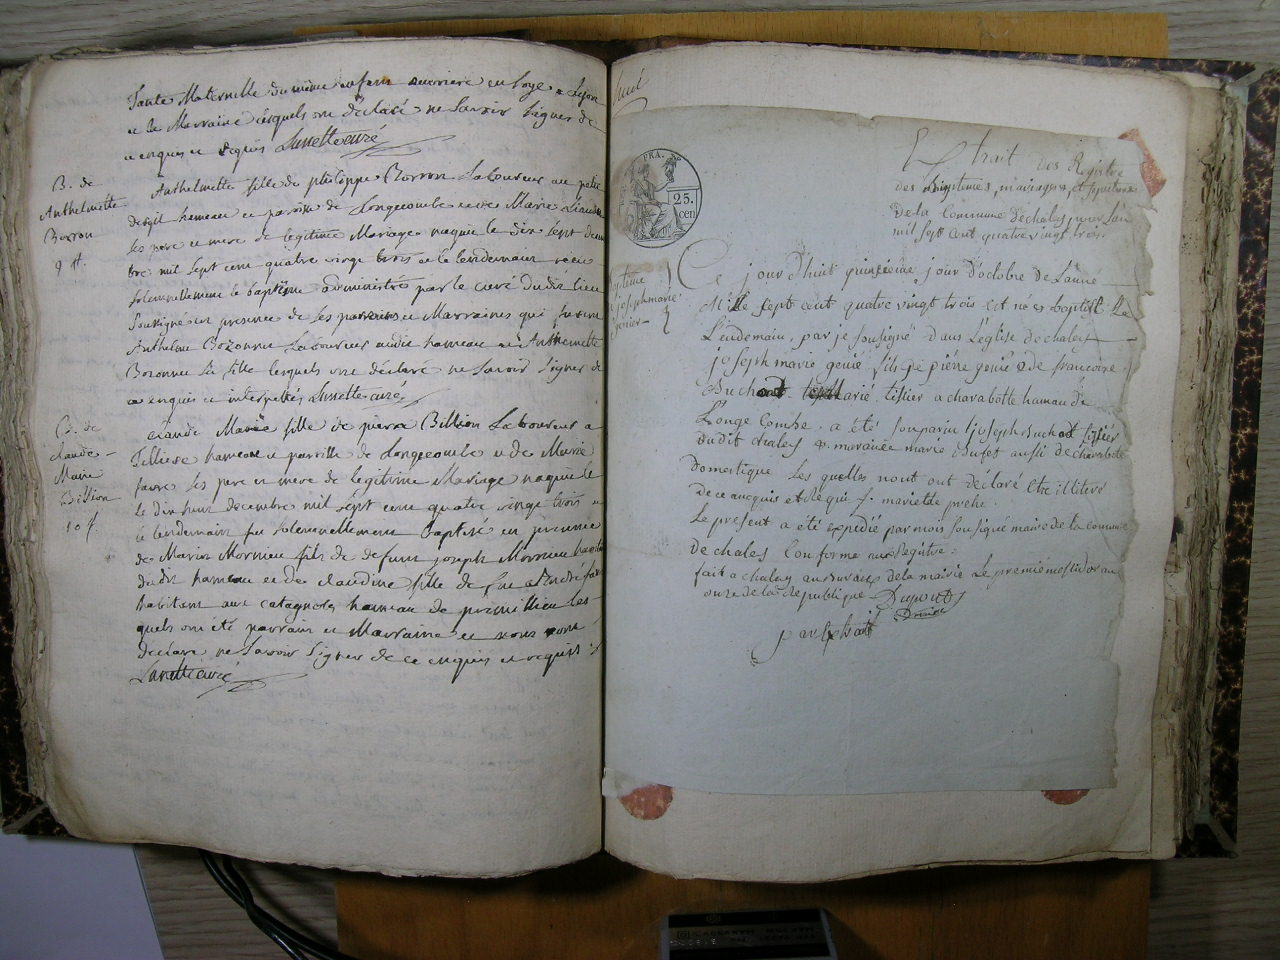 Tante Maternelle du même enfant ouvriere en soye a Lyon
et la Marraine lesquels ont déclaré ne savoir signer de
ce enquis et requis Lunette curé
B. de
Anthelmette
Borron
9 f.
Anthelmette fille de philippe Borron Laboureur au petit
dergit hameau et paroisse de Longecombe et de Marie
ses pere et mere de legitime Mariage naquit le dix sept decem
bre mil sept cent quatre vingt trois et le lendemain reçut
solemnellement le baptême administré par le curé dudit lieu
soussigné en presence de ses parrains et Marraines qui furent
Anthelme Bozonnet Laboureur audit hameau et Anthelmette
Bozonnet sa fille lesquels ont déclaré ne savoir signer de
ce enquis et interpellés Lunette curé
B. de
claude
Marie
Billion
10 f.
claude Marie fille de pierre Billion Laboureur a
hameau et paroisse de Longecombe et de Marie
favre ses pere et mere de legitime Mariage naquit le
dix huit decembre mil sept cent quatre vingt trois et
le lendemain fut solemnellement baptisé en presence
de Marin Mornieu fils de defunt joseph Mornieu
dudit hameau et de claudine fille de
habitant aux catagnoles hameau de premillieu les
quels ont été parrain et Marraine et nous ont
declaré ne savoir signer de ce enquis et requis
Lunette curé
huit
FRA.
25.
cen
Extrait des Registre
des Baptêmes, mariages, et sepultures
de la commune de chaley pour l'an
mil sept cent quatre vingt trois
Baptême
joseph marie
genier
Ce jourd'huit quinzieme jour d'octobre de L'anné
Mille sept cent quatre vingt trois est né et baptisé Le
Lendemain, par je sousigné dans L'église de chaley
joseph marie génié, fils de piére genié & de francoise
Buchat marié. tisier a charabotte hamau de
Longe Combe. a été son parin joseph Buchat tisier
dudit chaley & marainée marie Bufet ausli de charabote
domestique Les quelles nout ont déclaré etre illiteré
de ce ancquis et Requi S. mariette prêtre.
Le present a été expedié par nois sousigné maire de la commune
de chaley Conforme aux Registre.
fait a chaley au bureau de la mairie Le premie messidor an
onze de la République Dupont
par extrait